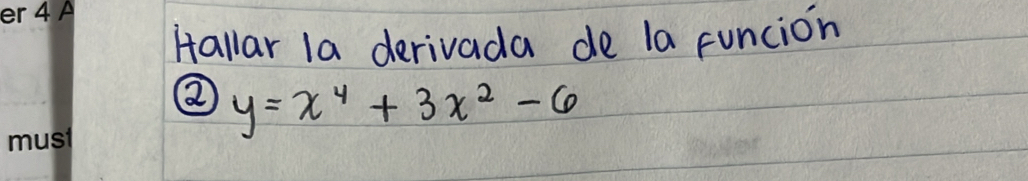 er 4 A
Hallar la derivada de la función
② y = x⁴ + 3x² - 6
must